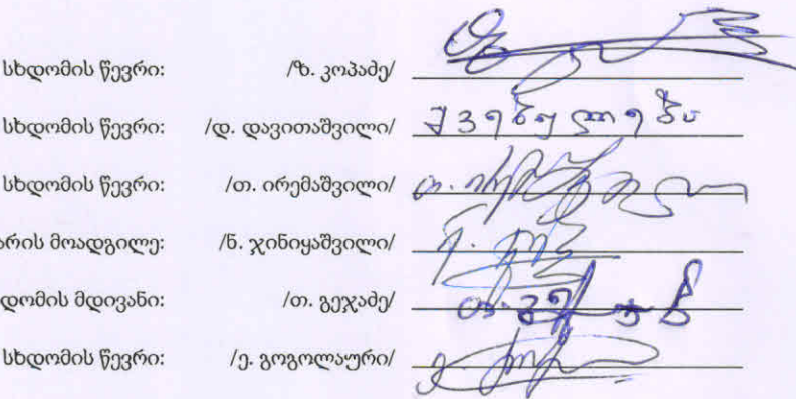 სხდომის წევრი: /ზ. კოპაძე/
სხდომის წევრი: /დ. დავითაშვილი/ შვებულება
სხდომის წევრი: /თ. ირემაშვილი/
არის მოადგილე: /ნ. ჯინიყაშვილი/
დომის მდივანი: /თ. გეჯაძე/
სხდომის წევრი: /ე. გოგოლაური/